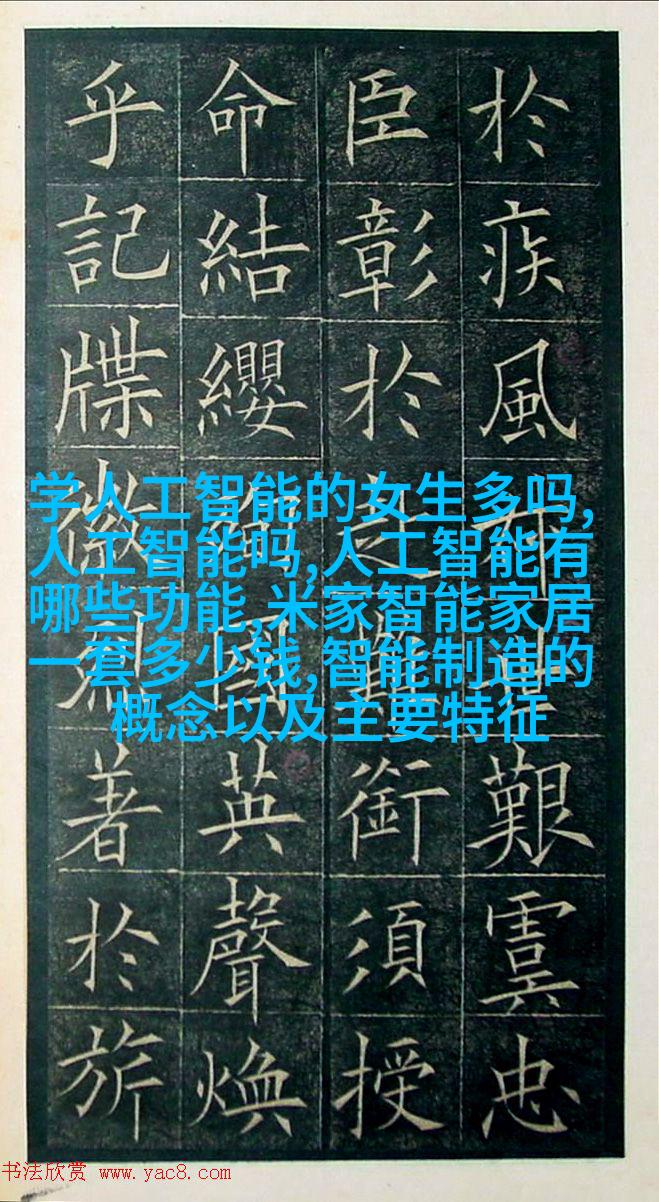 於疾風叔世艱虞忠
臣彰於赴難銜須授
命結纓殉國英聲煥
乎記牒徽烈著於旂
学人工智能的女生多吗,
人工智能吗,人工智能有
哪些功能,米家智能家居
一套多少钱,智能制造的
概念以及主要特征
书法欣赏 www.yac8.com